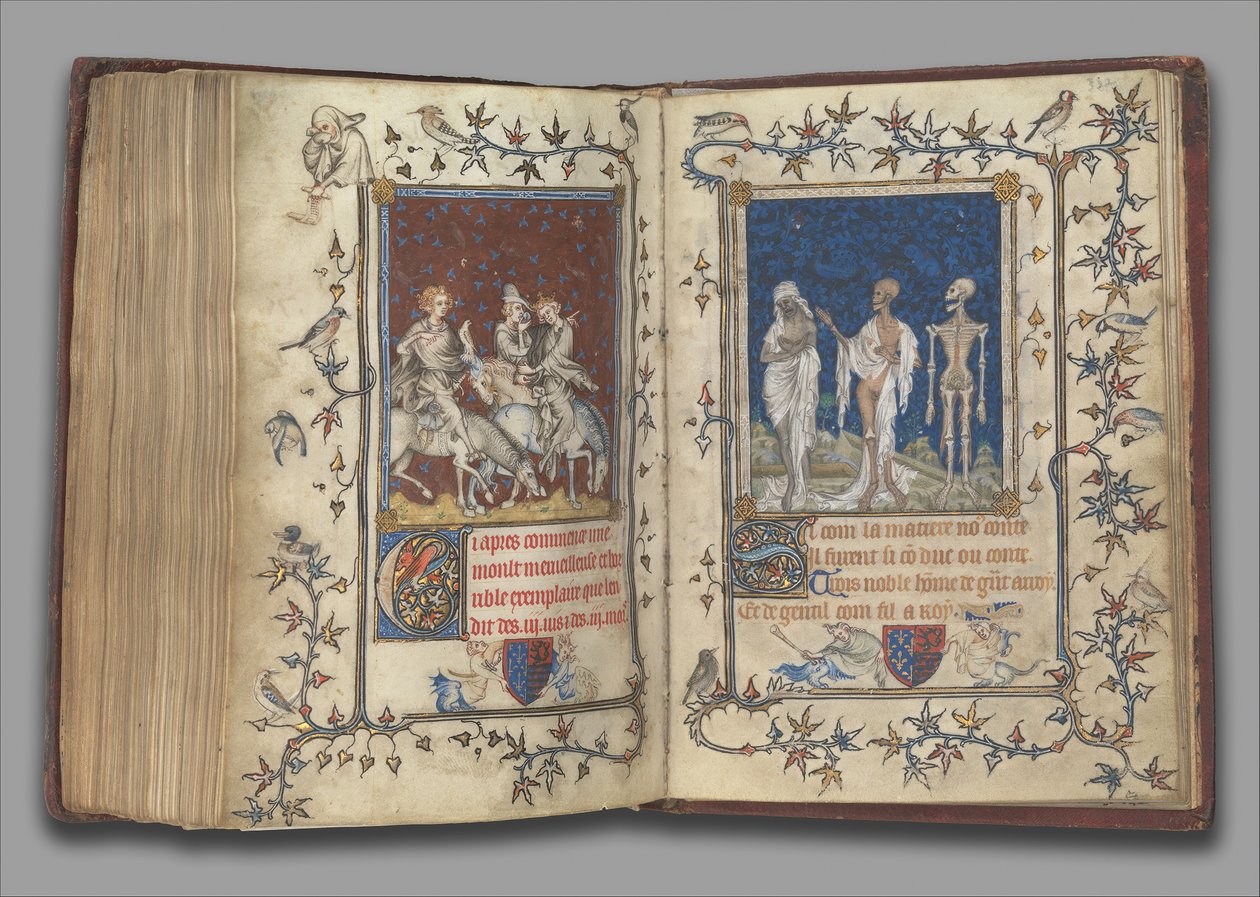 Ci apres commence une
moult merueilleuse et hor
rible exemplaire que len
dit des .iij. uis ⁊ des .iij. mors
Si com la matiere no conte
Il furent si cō duc ou conte.
Trois noble hōme de grāt arroy.
Et de gentil com fil a roy.